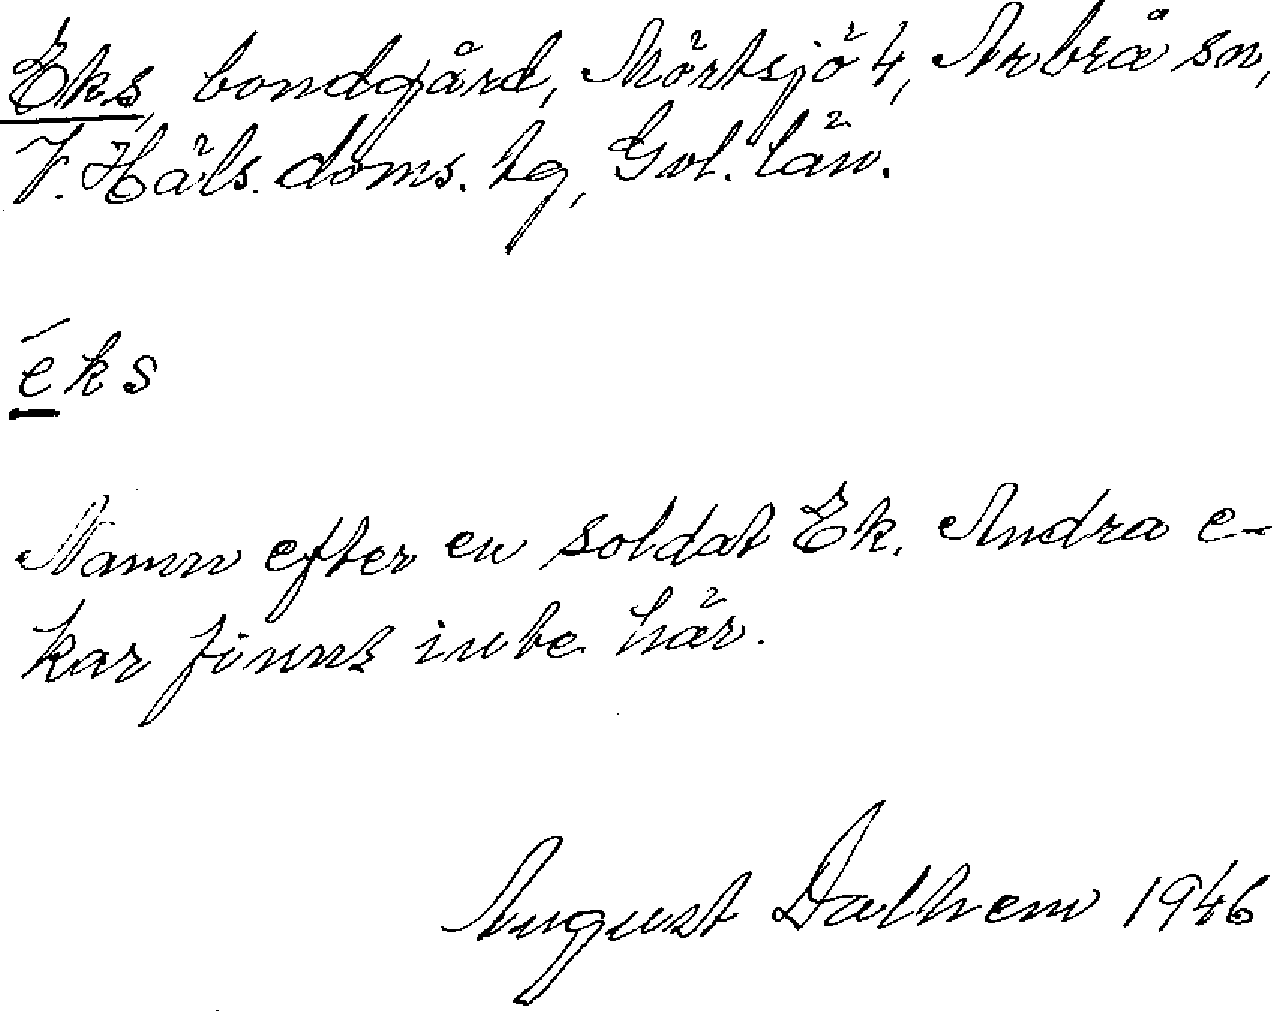 Eks, bondgård, Mörtsjö 4, Arbrå sn,
V. Häls. doms. tg, Gvl. län.
éks
Namn efter en soldat Ek. Andra e-
kar finns inte här.
August Dalhem 1946